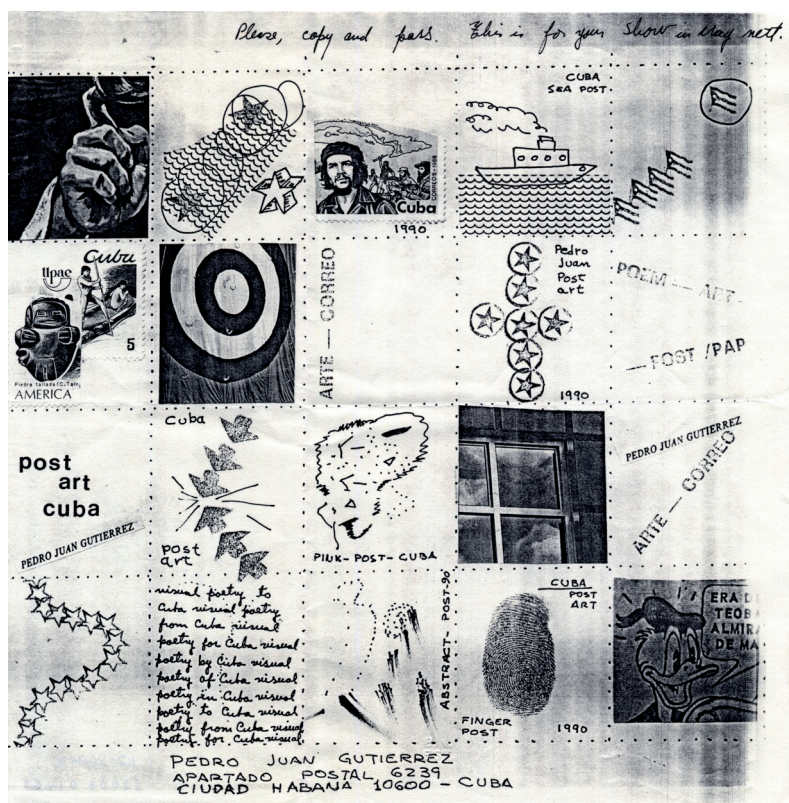 Please, copy and pass. This is for your show in May nett.
CUBA
SEA POST
CORREOS 1988
Cuba
1990
Cuba
upae
5
Piedra Tallada (C. Taíno)
AMERICA
ARTE — CORREO
Pedro
Juan
Post
art
1990
POEM — ART -
— POST /PAP
post
art
cuba
PEDRO JUAN GUTIERREZ
Cuba
post
art
PINK-POST-CUBA
PEDRO JUAN GUTIERREZ
ARTE — CORREO
visual poetry to
Cuba visual poetry
from Cuba visual
poetry for Cuba visual
poetry by Cuba visual
poetry of Cuba visual
poetry in Cuba visual
poetry to Cuba visual
poetry from Cuba visual
poetry for Cuba visual
ABSTRACT- POST-90
CUBA
POST
ART
FINGER
POST
1990
ERA
TEOB
ALMIRA
DE MA
PEDRO JUAN GUTIERREZ
APARTADO POSTAL 6239
CIUDAD HABANA 10600 - CUBA